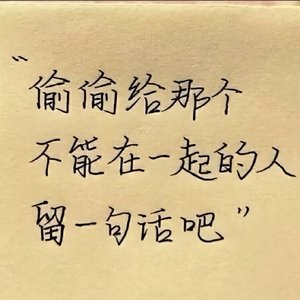 “偷偷给那个
不能在一起的人
留一句话吧”